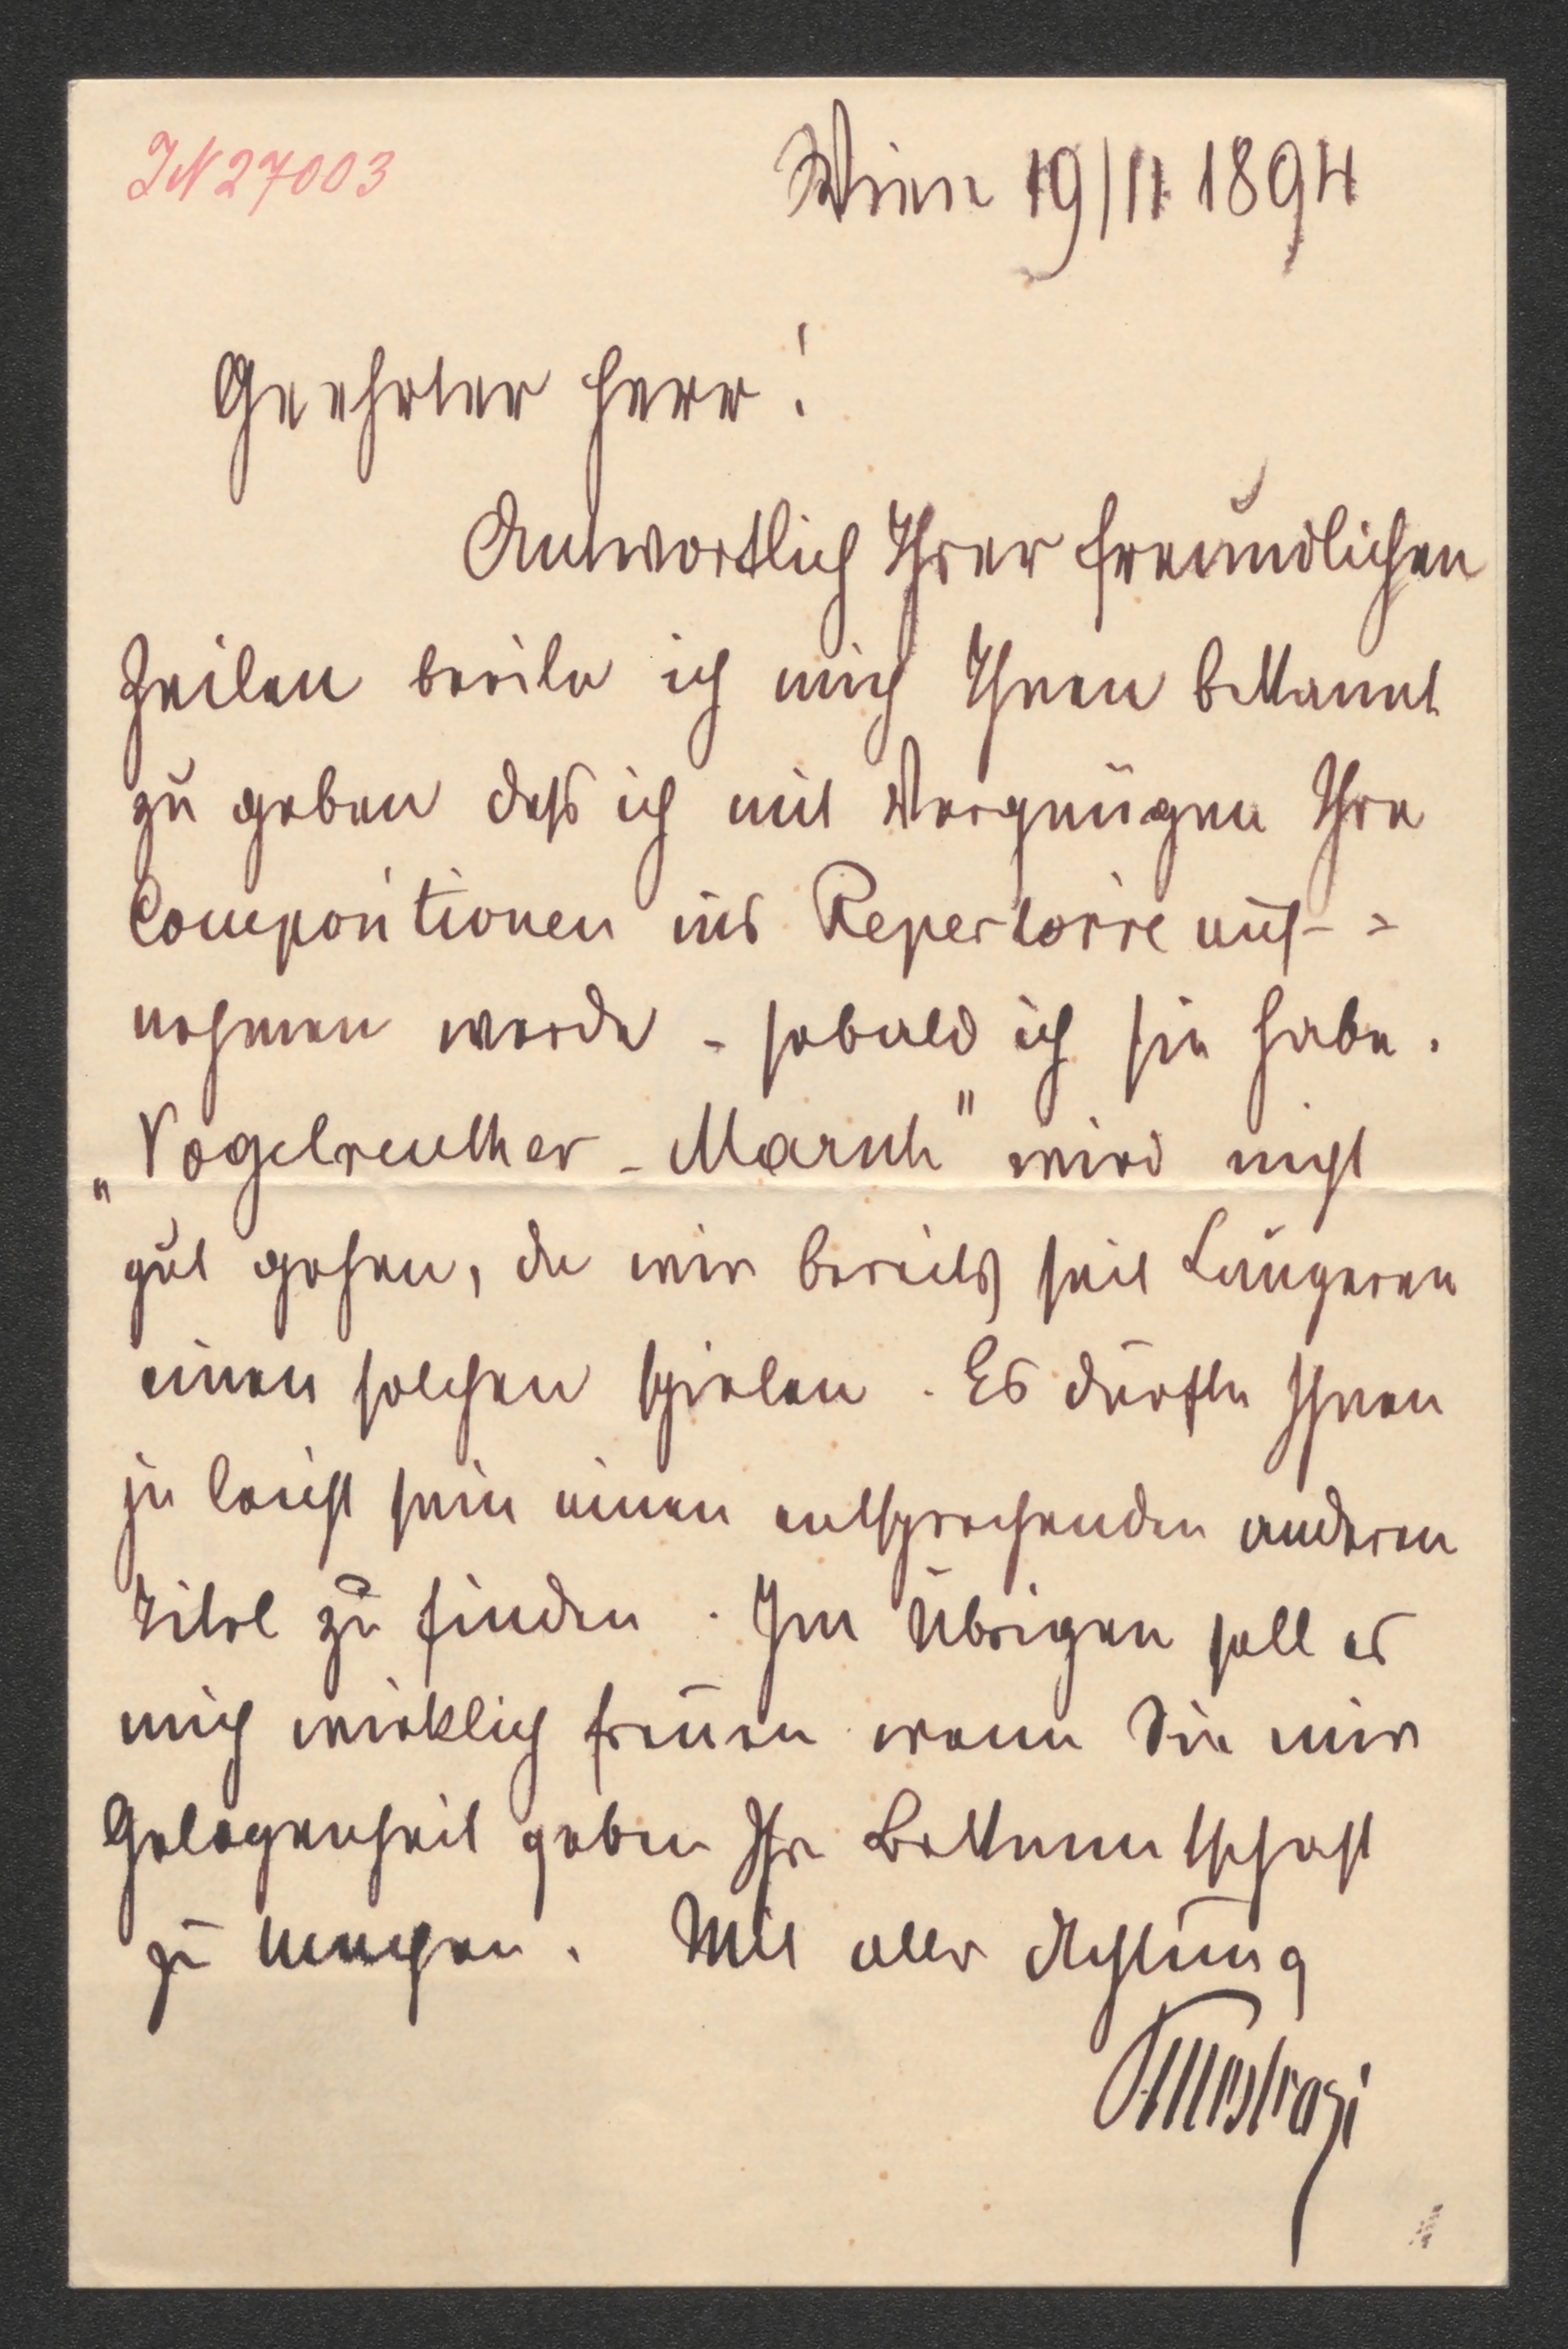 IN 27003
Wien 19/11 1894
Geehrter Herr!
Antwortlich Ihrer freundlichen
Zeilen beeile ich mich Ihnen bekannt
zu geben daß ich mit Vergnügen Ihre
Compositionen ins Repertoire auf-=
nehmen werde - sobald ich sie habe.
„Vogelreuther-Marsch" wird nicht
gut gehen, da wir bereits seit Längeren
einen solchen spielen. Es dürfte Ihnen
ja leicht sein einen entsprechenden anderen
Titel zu finden. Im Übrigen soll es
mich wirklich freuen wenn Sie mir
Gelegenheit geben Ihre Bekanntschaft
zu machen. Mit aller Achtung